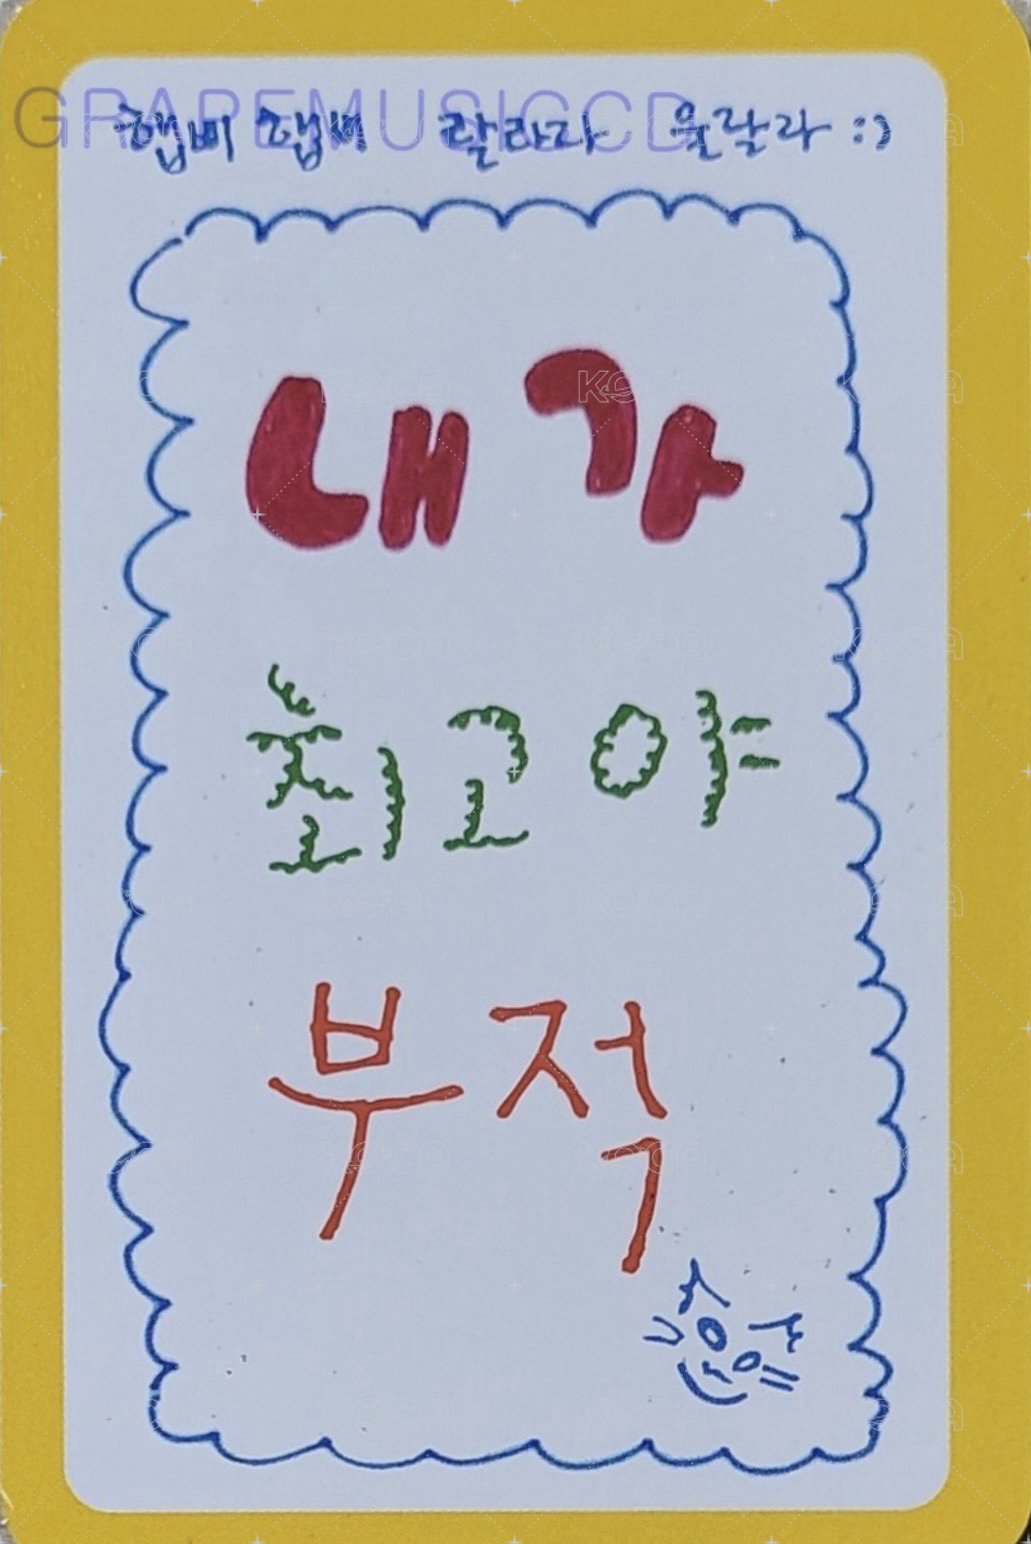 GRAPEMUSICCD
햅삐 햅삐 랄라라 울랄라 :)
내가
최고야
부적